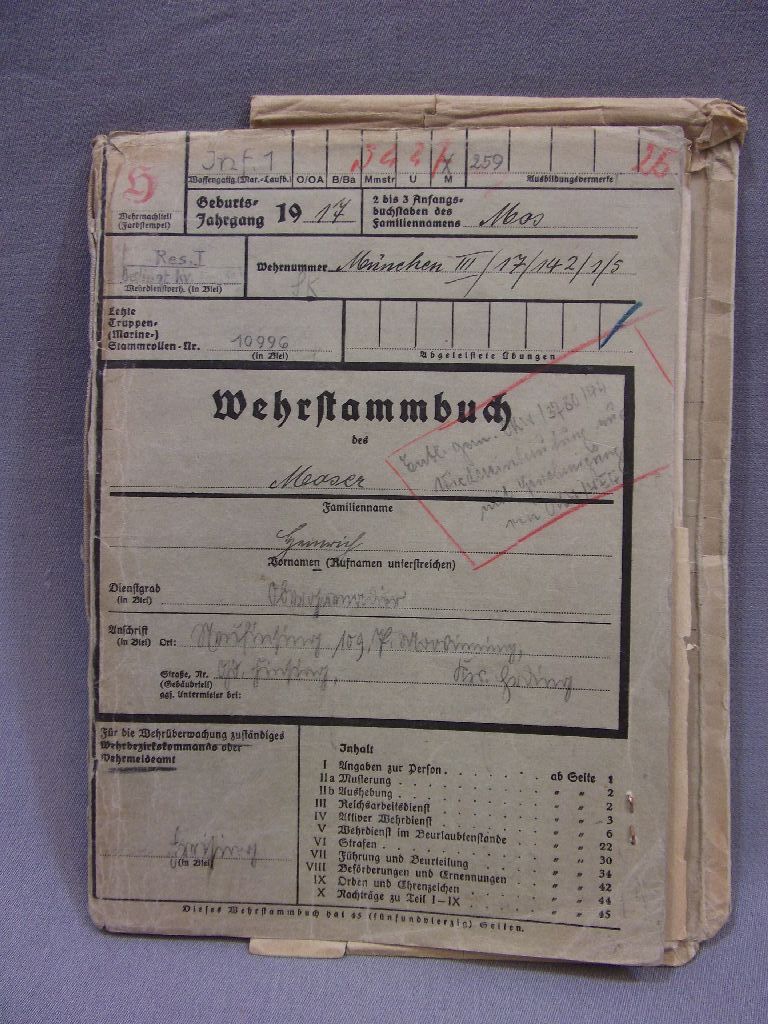 H
Wehrmachtteil
(Farbstempel)
Inf. 1
Waffengattg. (Mar.-Laufb.) O/OA B/Ba Mmstr U M
259
Ausbildungsvermerke
Geburts-
Jahrgang 1917
2 bis 3 Anfangs-
buchstaben des
Familiennamens Mos
Res. I
Wehrdienstverh. (in Blei)
Wehrnummer München III/17/142/1/5
Letzte
Truppen-
(Marine-)
Stammrollen-Nr. 10996
(in Blei)
Abgeleistete Übungen
Wehrstammbuch
des
Moser
Familienname
Heinrich
Vornamen (Rufnamen unterstreichen)
Dienstgrad
(in Blei)
Anschrift
(in Blei) Ort: 109, P. Moosinning,
Straße, Nr.
(Gebäudeteil)
ggf. Untermieter bei:
Kr. Erding
Für die Wehrüberwachung zuständiges
Wehrbezirkskommando oder
Wehrmeldeamt
(in Blei)
Inhalt
I Angaben zur Person . . . . . . ab Seite 1
IIa Musterung . . . . . . " " 2
IIb Aushebung . . . . . . " " 2
III Reichsarbeitsdienst . . . . . . " " 3
IV Aktiver Wehrdienst . . . . . . " " 6
V Wehrdienst im Beurlaubtenstande . . . " " 22
VI Strafen . . . . . . " " 30
VII Führung und Beurteilung . . . . . . " " 34
VIII Beförderungen und Ernennungen . . . " " 42
IX Orden und Ehrenzeichen . . . . . . " " 44
X Nachträge zu Teil I–IX . . . . . . " " 45
Dieses Wehrstammbuch hat 45 (fünfundvierzig) Seiten.